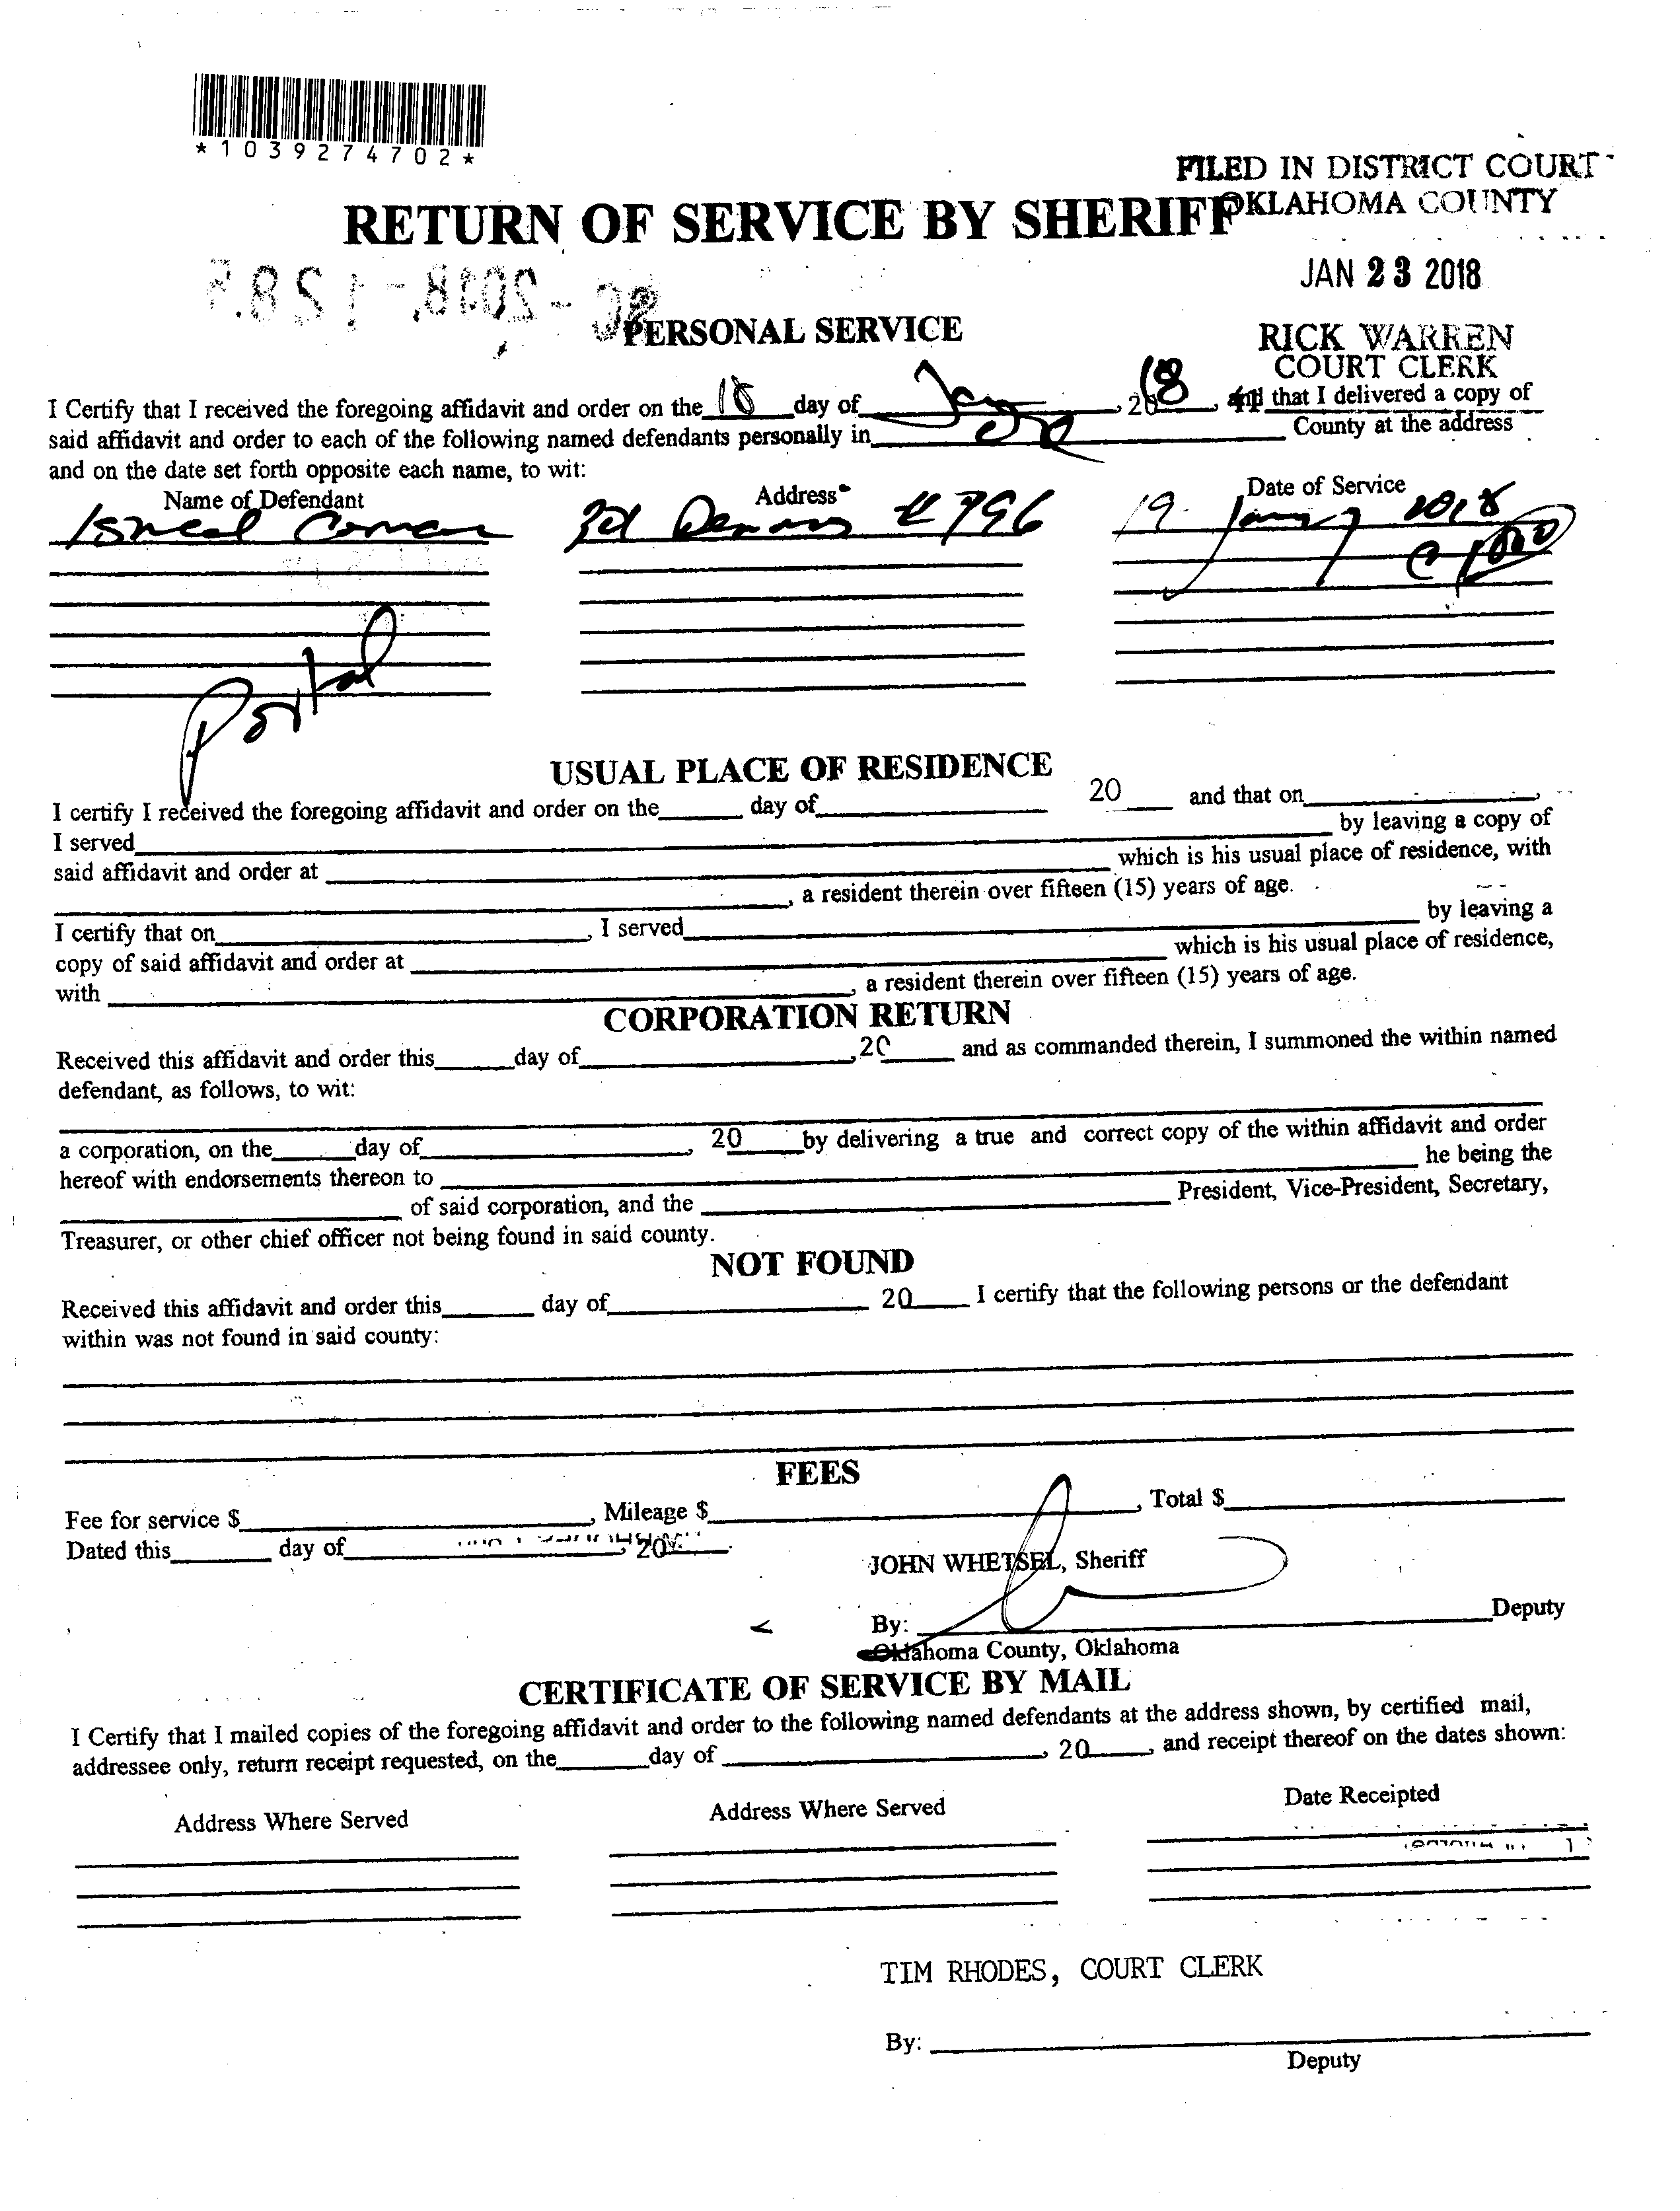 *1039274702*
FILED IN DISTRICT COURT
OKLAHOMA COUNTY
RETURN OF SERVICE BY SHERIFF
JAN 23 2018
PERSONAL SERVICE
RICK WARREN
COURT CLERK
I Certify that I received the foregoing affidavit and order on the 18 day of Jan, 2018, and that I delivered a copy of
said affidavit and order to each of the following named defendants personally in County at the address
and on the date set forth opposite each name, to wit:
Name of Defendant Address Date of Service
796 19 January 2018
Portal
USUAL PLACE OF RESIDENCE
I certify I received the foregoing affidavit and order on the______ day of______ 20____ and that on______,
I served______ by leaving a copy of
said affidavit and order at ______ which is his usual place of residence, with
______, a resident therein over fifteen (15) years of age.
I certify that on______, I served______ by leaving a
copy of said affidavit and order at ______ which is his usual place of residence,
with ______, a resident therein over fifteen (15) years of age.
CORPORATION RETURN
Received this affidavit and order this______day of______,20____ and as commanded therein, I summoned the within named
defendant, as follows, to wit:
a corporation, on the______day of______, 20____by delivering a true and correct copy of the within affidavit and order
hereof with endorsements thereon to ______ he being the
______ of said corporation, and the ______ President, Vice-President, Secretary,
Treasurer, or other chief officer not being found in said county.
NOT FOUND
Received this affidavit and order this______ day of______ 20____ I certify that the following persons or the defendant
within was not found in said county:
FEES
Fee for service $______, Mileage $______, Total $______
Dated this______ day of______ 20____.
JOHN WHETSEL, Sheriff
By: ______Deputy
Oklahoma County, Oklahoma
CERTIFICATE OF SERVICE BY MAIL
I Certify that I mailed copies of the foregoing affidavit and order to the following named defendants at the address shown, by certified mail,
addressee only, return receipt requested, on the______day of ______, 20____, and receipt thereof on the dates shown:
Address Where Served Address Where Served Date Receipted
TIM RHODES, COURT CLERK
By: ______
Deputy